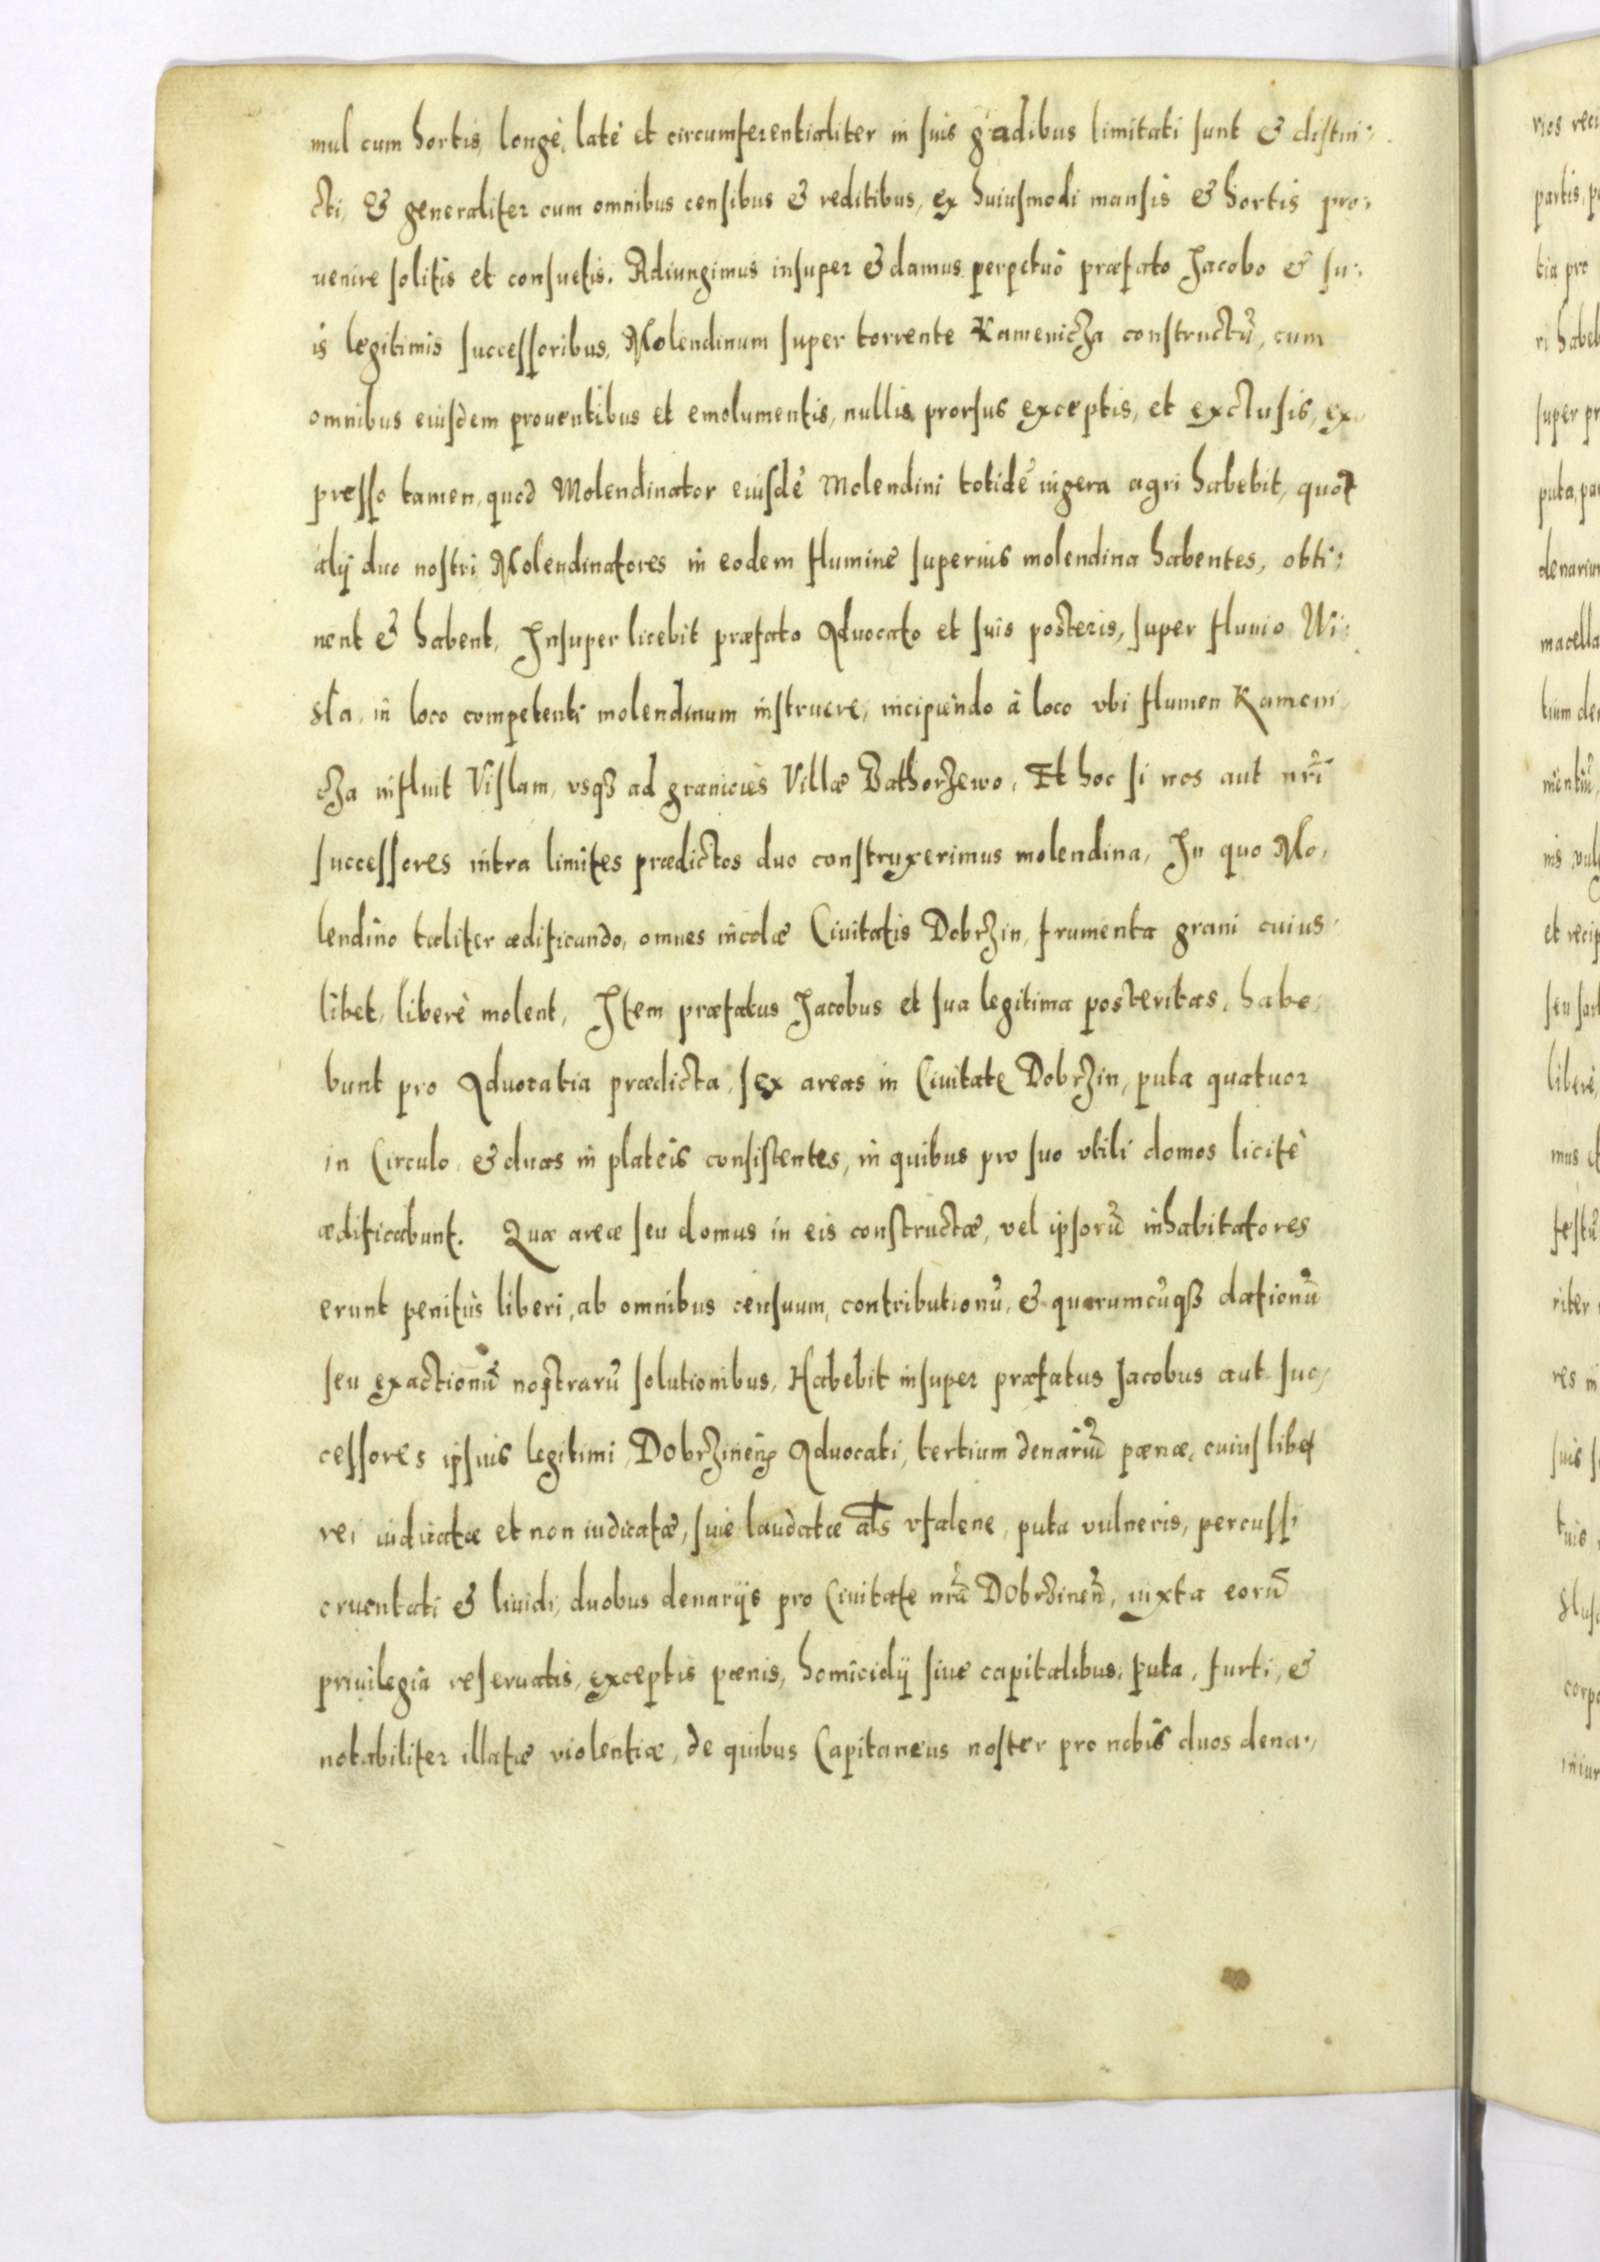 mul cum hortis, longè, latè et circumferentialiter in suis gadibus limitati sunt & distin:
cti, & generaliter cum omnibus censibus & reditibus, ex huiusmodi mansis & hortis pro:
uenire solitis et consuetis. Adiungimus insuper & damus perpetuò præfato Jacobo & su:
is legitimis successoribus, Molendinum super torrente Kamenicza constructũ, cum
omnibus eiusdem prouentibus et emolumentis, nullis prorsus exceptis, et exclusis, ex
presso tamen, quod Molendinator eiusdẽ Molendini totidẽ iugera agri habebit, quot
alij duo nostri Molendinatores in eodem flumine superius molendina habentes, obti:
nent & habent, Insuper licebit præfato Aduocato et suis posteris, super fluuio Wi:
sla, in loco competenti molendinum instruere, incipiendo à loco vbi flumen Kameni
cza influit Vislam, vsqȝ ad granicies Villæ Bathorzewo. Et hoc si nos aut nrĩ
successores intra limites prædictos duo construxerimus molendina, In quo Mo,
lendino taliter ædificando, omnes incolæ Ciuitatis Dobrzin, frumenta grani cuius
libet, liberè molent, Item præfatus Jacobus et sua legitima posteritas, habe
bunt pro Aduocatia prædicta, sex areas in Ciuitate Dobrzin, puta quatuor
in Circulo, & duas in plateis consistentes, in quibus pro suo vtili domos licitè
ædificabunt. Quæ areæ seu domus in eis constructæ, vel ipsorũ inhabitatores
erunt penitùs liberi, ab omnibus censuum, contributionũ, & quarumcũqȝ dationũ
seu exactionũ nostrarũ solutionibus, Habebit insuper præfatus Jacobus aut suc,
cessores ipsius legitimi, Dobrzineñ Aduocati, tertium denariũ pœnæ, cuiuslibet
rei iudicatæ et non iudicatæ, siue laudatæ als vstalene, puta vulneris, percussi
cruentati & liuidi, duobus denarijs pro Ciuitate nrã Dobrzineñ, iuxta eorũ
priuilegia reseruatis, exceptis pœnis, homicidij siue capitalibus, puta, furti, &
notabiliter illatæ violentiæ, de quibus Capitaneus noster pro nobis duos dena:,